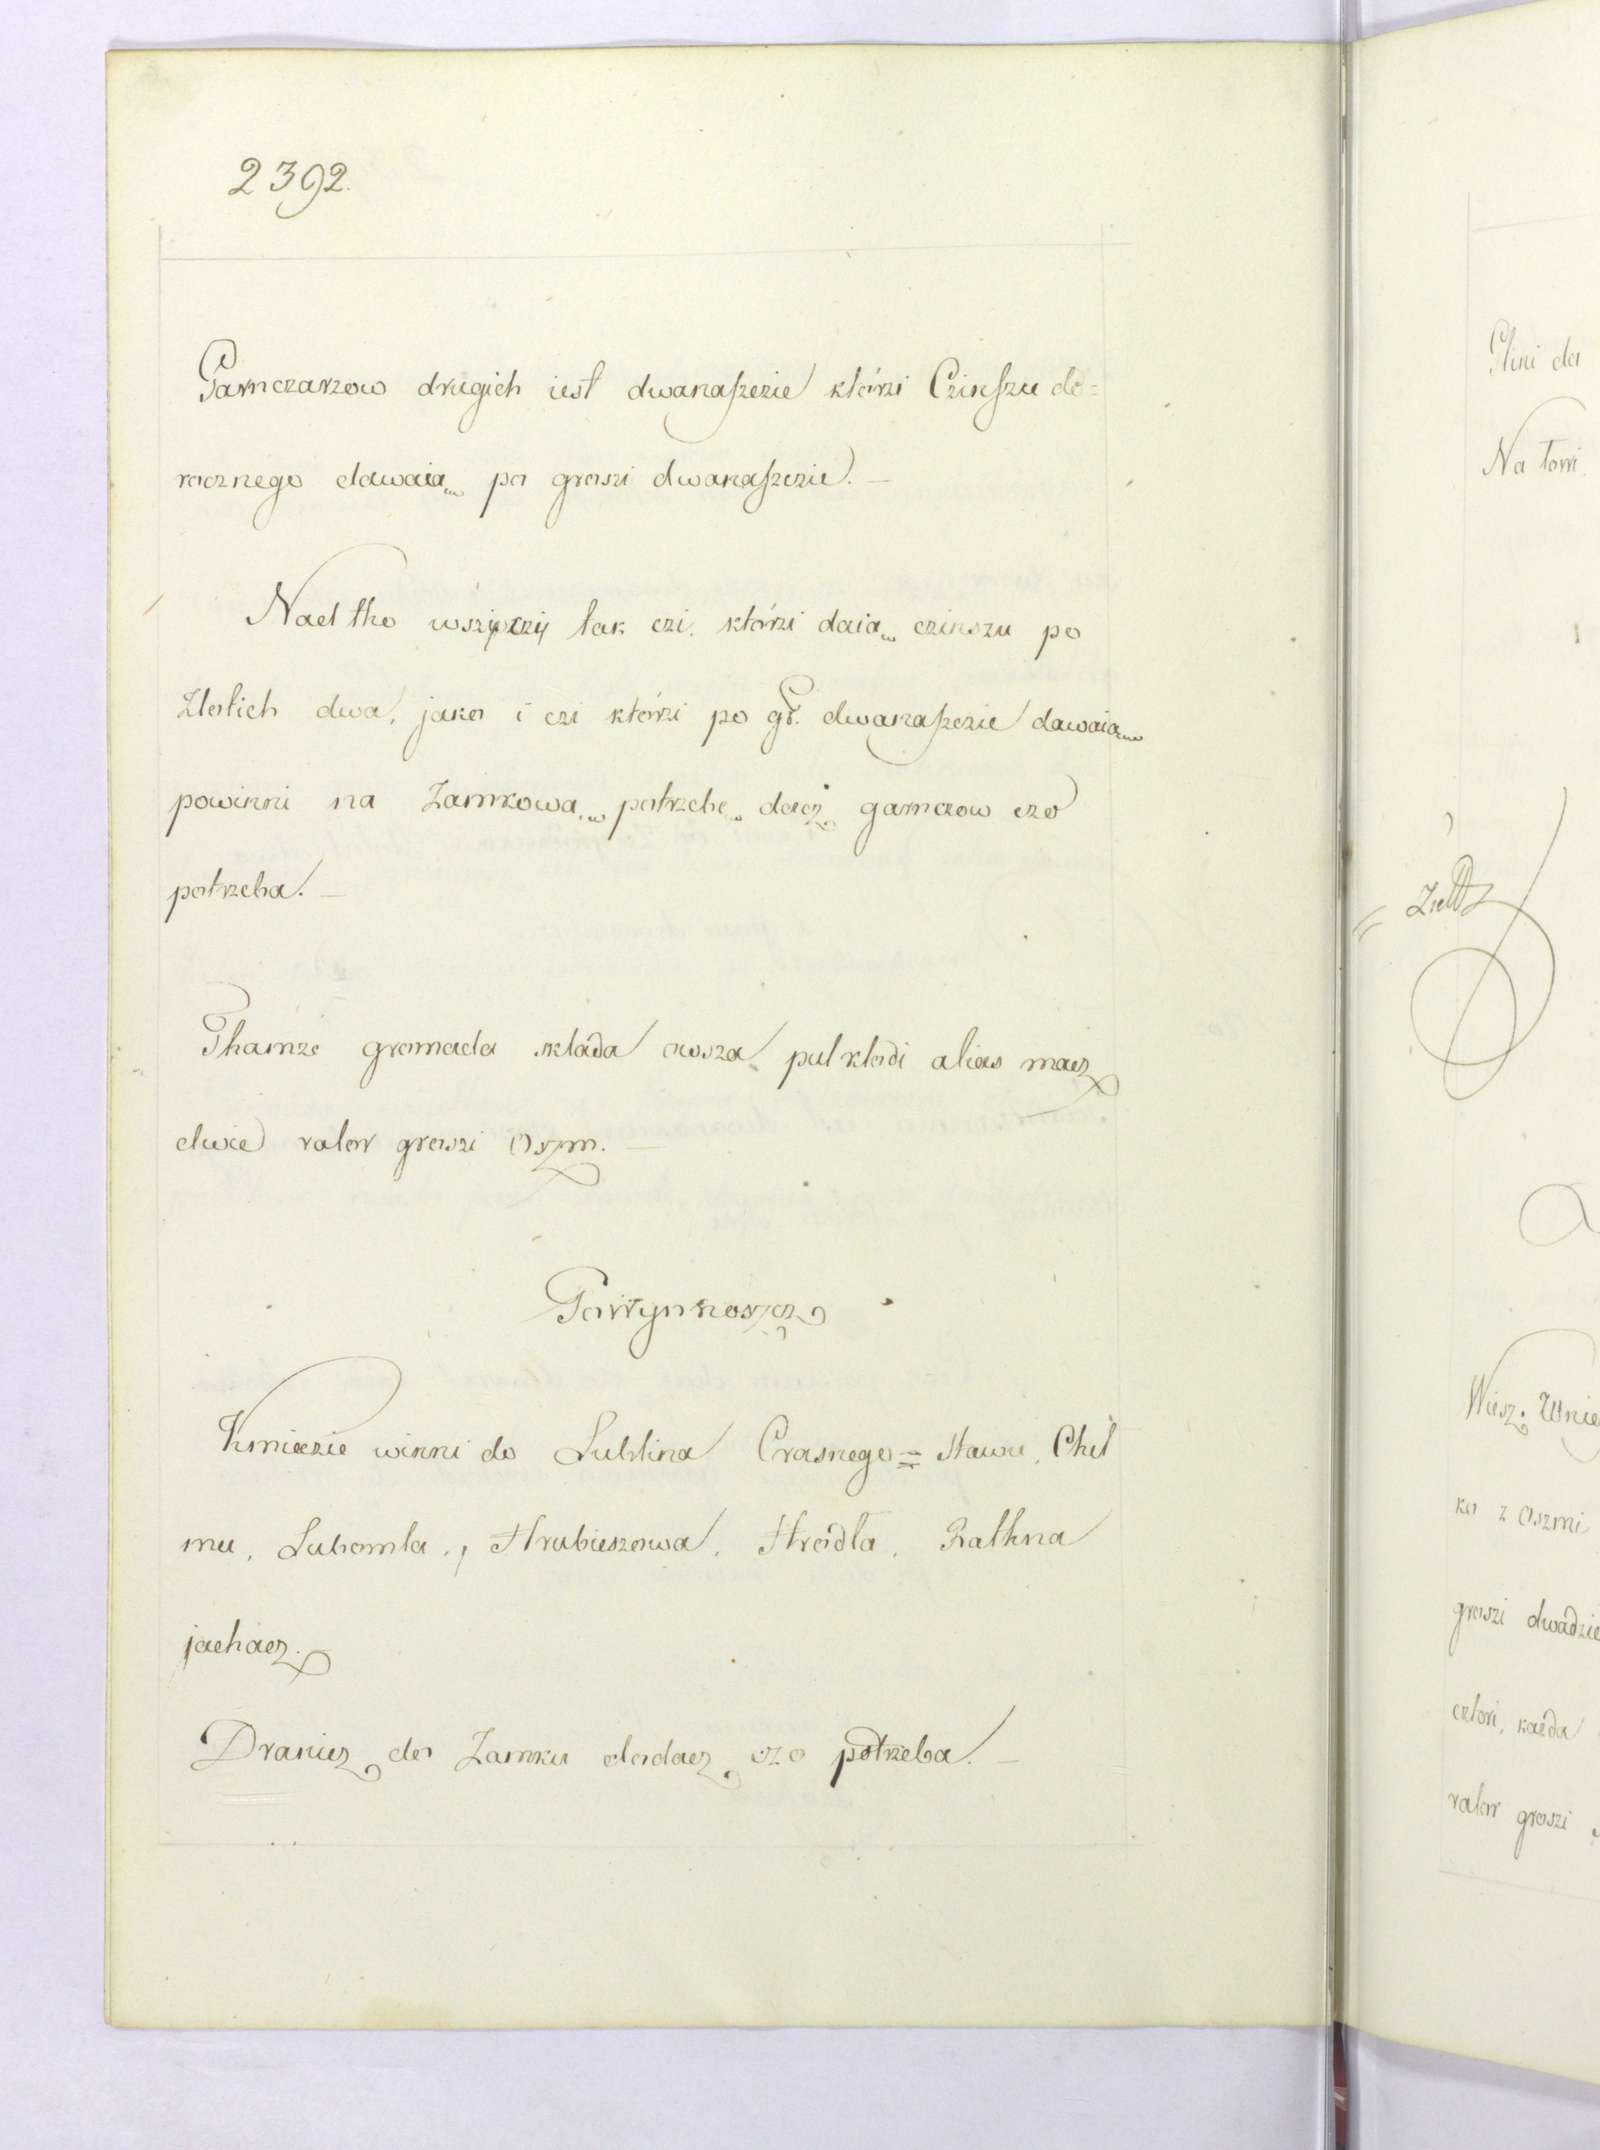 2392.
Garnczarzow drugich iest dwanaszczie którzi Czinszu do=
rocznego dawaią po groszi dwanaszczie. —
Nad tho wszyczy tak czi, którzi daią czinszu po
Zlotich dwa, jako i czi którzi po gr. dwanaszczie dawaią
powinni na Zamkową potrzebę dacz garnczow czo
potrzeba. —
Thamże gromada składa owsza pul kłodi alias macz
dwie valor groszi Oszm. —
Powynnoscz
Kmieczie winni do Lublina Crasnego= stawu, Cheł
mu, Lubomla, Hrubieszowa, Hrodła, Rathna
jachacz.
Dranicz do Zamku dodacz czo potrzeba. —
Glini do
Na Torri
Wiesz
ka z Oszmi
groszi dwadzie
człori, każda
valor groszi